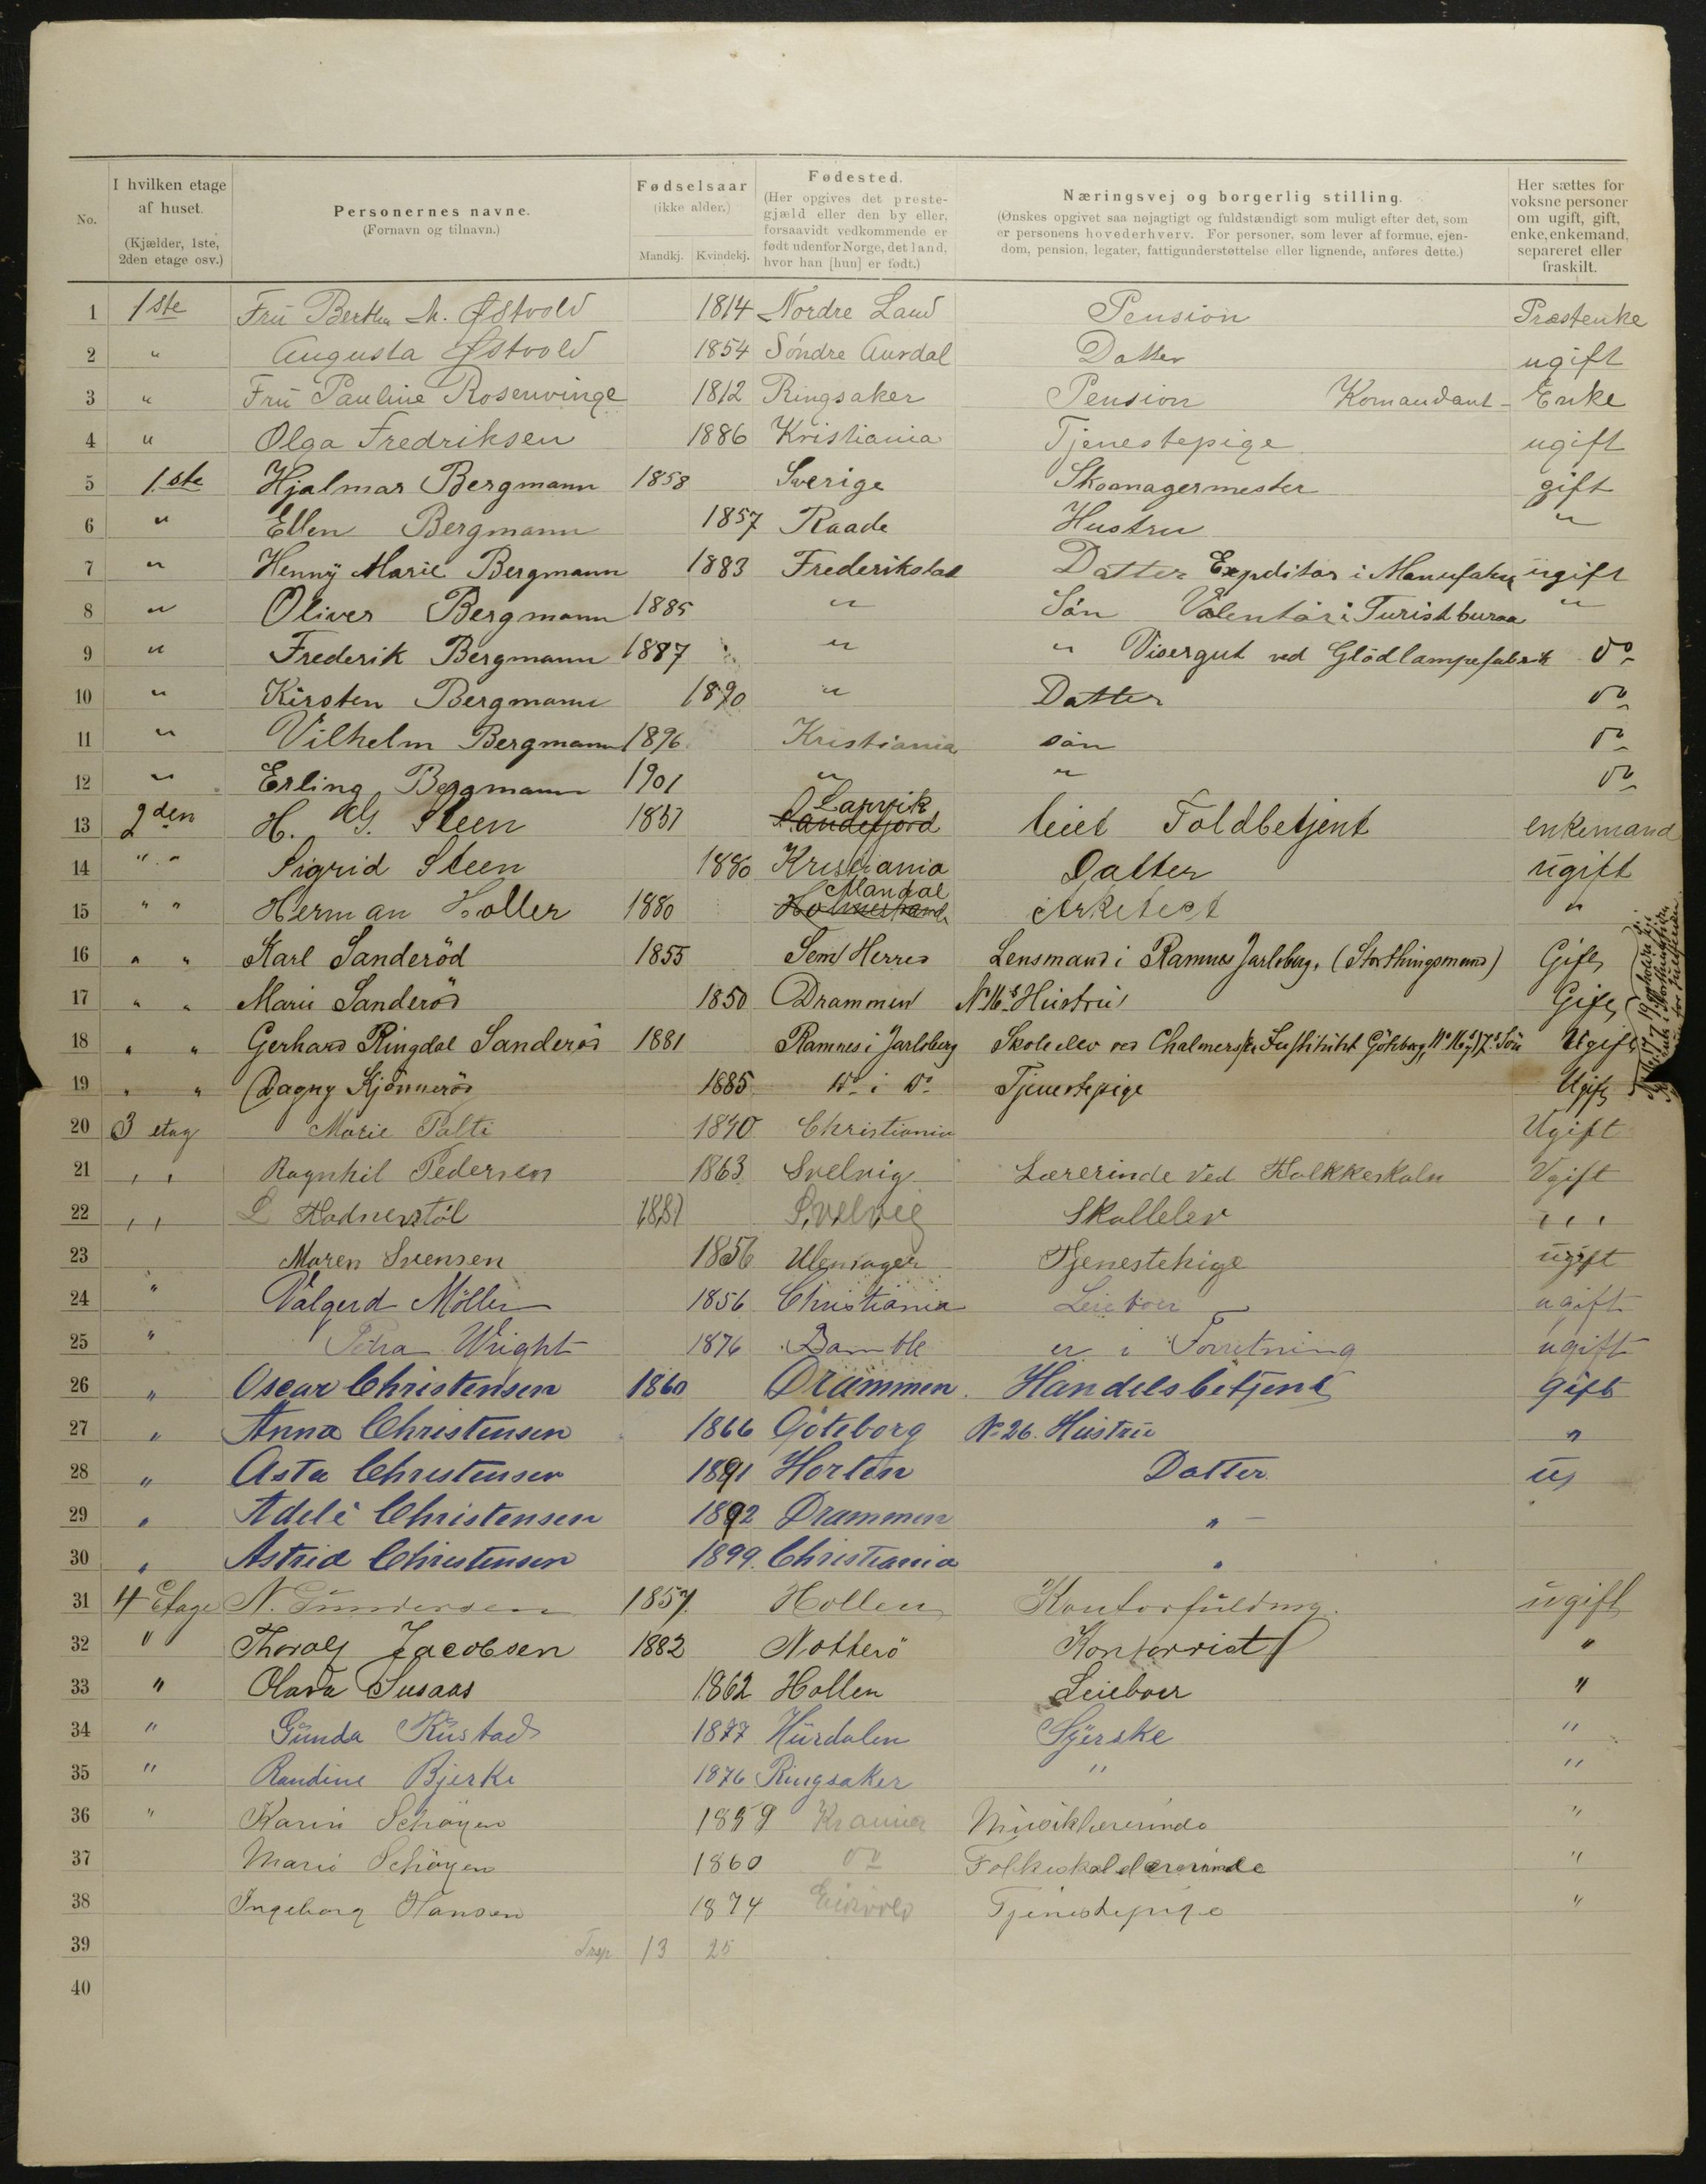 No.
I hvilken etage af huset.
(Kjælder, 1ste, 2den etage osv.)
Personernes navne.
(Fornavn og tilnavn.)
Fødselsaar
(ikke alder.)
Mandkj. Kvindekj.
Fødested.
(Her opgives det preste-
gjæld eller den by eller,
forsaavidt vedkommende er
født udenfor Norge, det land,
hvor han [hun] er født.)
Næringsvej og borgerlig stilling.
(Ønskes opgivet saa nøjagtigt og fuldstændigt som muligt efter det, som
er personens hovederhverv. For personer, som lever af formue, ejen-
dom, pension, legater, fattigunderstøttelse eller lignende, anføres dette.)
Her sættes for
voksne personer
om ugift, gift,
enke, enkemand,
separeret eller
fraskilt.
1 1ste Frü Bertha M. Østvold 1814 Nordre Land Pension Præstenke
2 " Augusta Østvold 1854 Søndre Aurdal Datter ugift
3 " Frü Pauline Rosenvinge 1812 Ringsaker Pension Komandant- Enke
4 " Olga Fredriksen 1886 Kristiania Tjenestepige ugift
5 1ste Hjalmar Bergmann 1858 Sverige Skomagermester gift
6 " Ellen Bergmann 1857 Raade Hustru "
7 " Henny Marie Bergmann 1883 Frederikstad Datter Expeditør i Manufaktur ugift
8 " Oliver Bergmann 1885 " Søn Valentør i Turistburaa "
9 " Frederik Bergmann 1887 " " Visergut ved Glödlampefabrik do
10 " Kirsten Bergmann 1890 " Datter do
11 " Vilhelm Bergmann 1896 Kristiania søn do
12 " Erling Bergmann 1901 " " do
13 2den H. G. Steen 1851 Sandefjord Larvik leiet Toldbetjent enkemand
14 " " Sigrid Steen 1880 Kristiania Datter ugift
15 " " Herman Holler 1880 Holmestrand Mandal Arketect "
16 " " Karl Sanderöd 1855 Sem Herred Lensmand i Ramnes Jarlsberg. (Storthingsmand) Gift
17 " " Marie Sanderöd 1850 Drammen No 16s Hüstrü Gift
18 " " Gerhard Ringdal Sanderöd 1881 Ramnes i Jarlsberg Skoleelev ved Chalmerske Institütet Göteborg, No 16 og 17s Sön Ugift
19 " " Dagny Kjønnerød 1885 Do i Do Tjenestepige Ugift
20 3 etag Marie Palti 1840 Christiania Ugift
21 " Ragnhil Pedersen 1863 Svelvig Lærerinde ved Folkkeskolen Ugift
22 " L Hadnerstöl 1881 Svelvig Skollelev "
23 Maren Svensen 1856 Ulensager Tjenestehige ugift
24 " Valgerd Möller 1856 Christiania Leieboer ugift
25 " Petra Wright 1876 Bamble er i Forretning ugift
26 " Oscar Christensen 1860 Drammen Handelsbetjent gift
27 " Anna Christensen 1866 Göteborg No 26. Hüstrü "
28 " Asta Christensen 1891 Horten Datter ug
29 " Adele Christensen 1892 Drammen "
30 " Astrid Christensen 1899 Christiania "
31 4 Etage N. Gündersen 1857 Hollen Kontorfuldmg. ugift
32 " Thoralf Jacobsen 1882 Notterö Kontorrist "
33 " Olava Susaas 1862 Hollen Leieboer "
34 " Günda Rüstad 1877 Hürdalen Syerske "
35 " Randine Bjerke 1876 Ringsaker " "
36 " Karin Schøyen 1859 Krania Müsiklærerinde "
37 Marie Schøyen 1860 do Folkeskolelærerinde "
38 Ingeborg Hansen 1874 Eidsvold Tjenestepige "
39 13 25
40